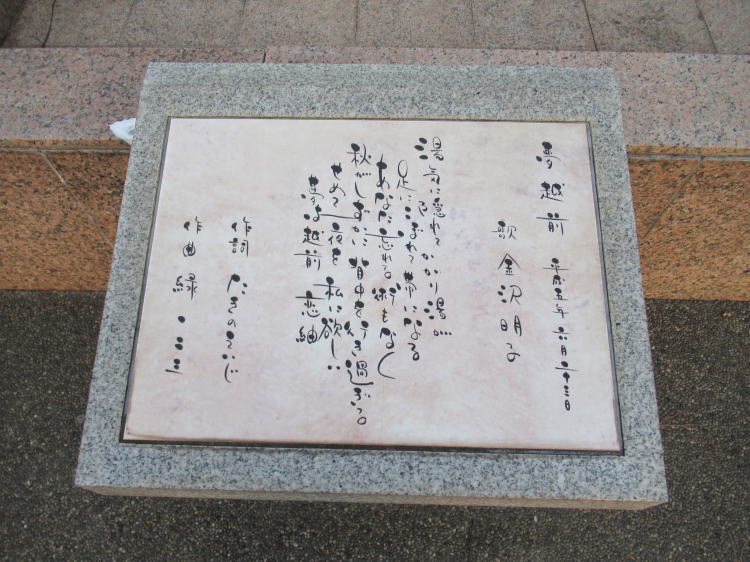 夢越前 平成五年六月二十三日
歌 金沢明子
湯気に隠れて かかり湯が
足にこぼれて 帯になる
あなた忘れる 術もなく
秋がしずかに 背中を行き過ぎる
せめて一夜を 私に欲しい
夢は越前 恋紬
作詞 だきのえいじ
作曲 緑一二三